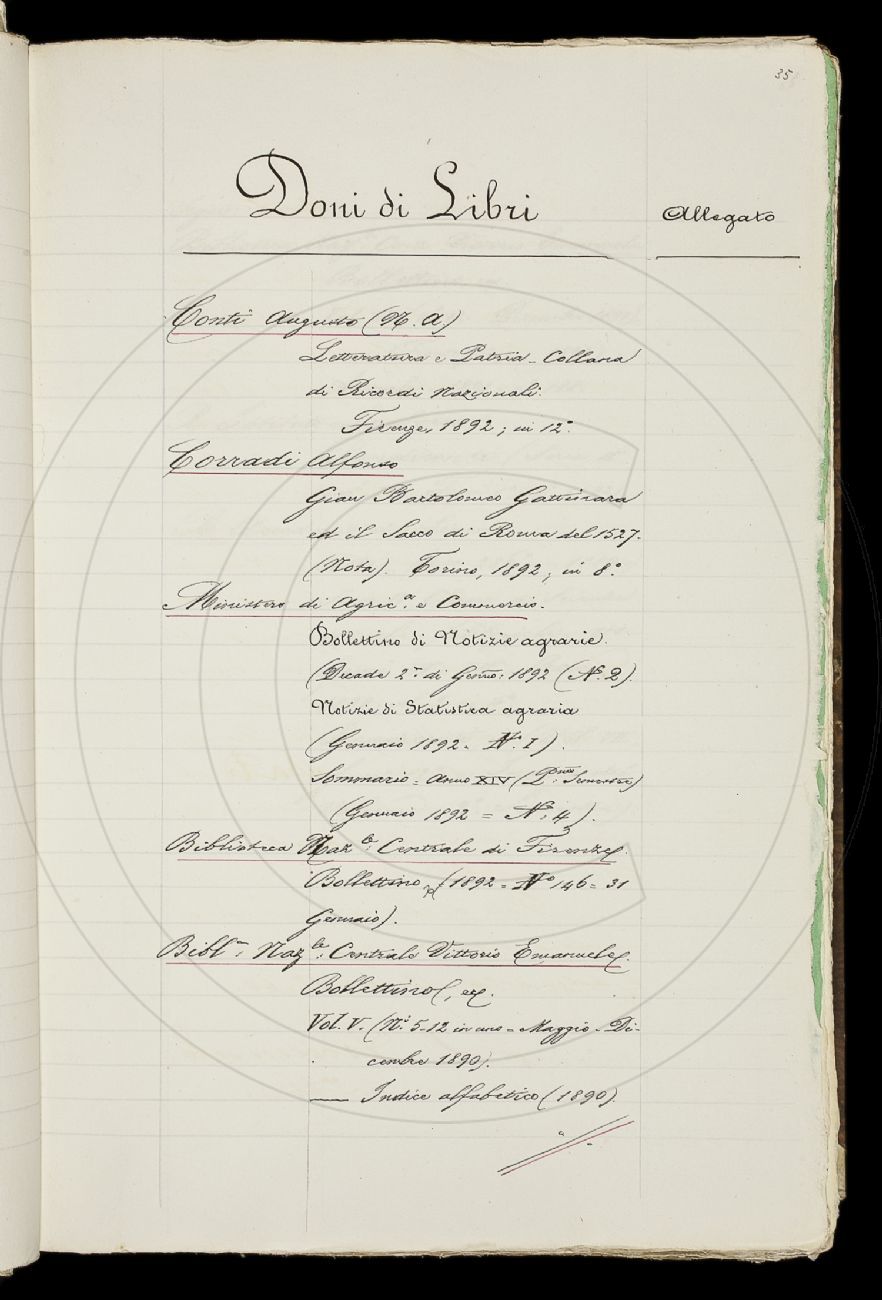 35
Doni di Libri
Allegato
Conti Augusto (N. A.)
Letteratura e Patria - Collana
di Ricordi Nazionali.
Firenze, 1892; in 12°.
Corradi Alfonso
Gian Bartolomeo Gattinara
ed il Sacco di Roma del 1527.
(Nota). Torino, 1892; in 8°.
Ministero di Agric.a e Commercio.
Bollettino di Notizie agrarie.
(Decade 2a di Genno: 1892 (N. 2).
Notizie di Statistica agraria
(Gennaio 1892 = N. I).
Sommario = Anno XIV (Imo Semestre)
(Gennaio 1892 = N. 4).
Biblioteca Naz.le Centrale di Firenze.
Bollettino (1892 = No 146 = 31
Gennaio).
Bibl.a Naz.le Centrale Vittorio Emanuele.
Bollettino, ec.
Vol. V. (Ni 5-12 in uno = Maggio - Di-
cembre 1890).
— Indice alfabetico (1890).